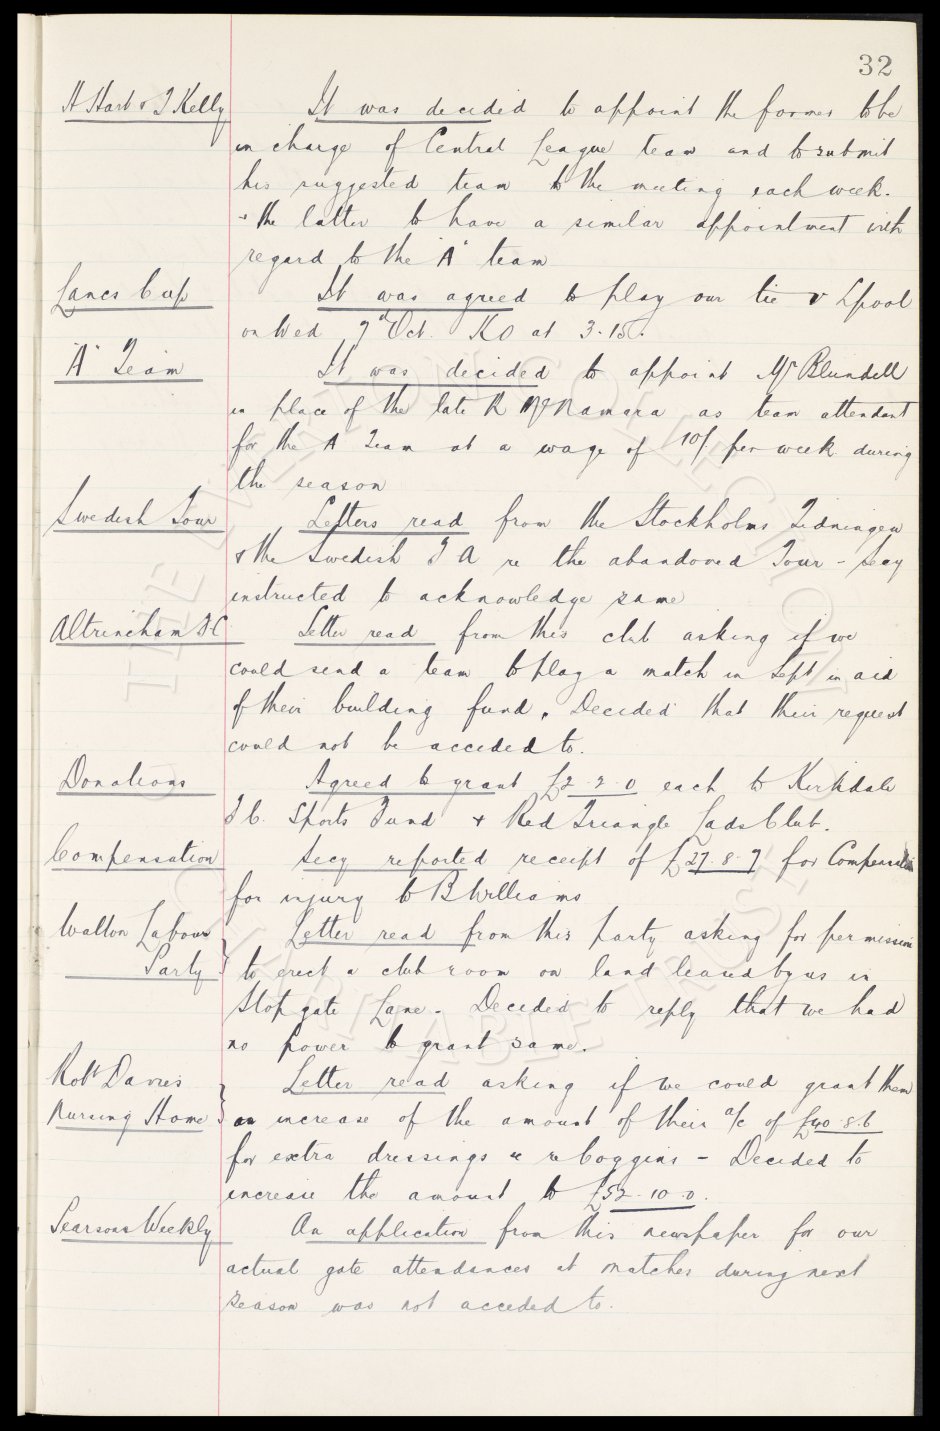 32
H Hart & J Kelly It was decided to appoint the former to be
in charge of Central League team and to submit
his suggested team to the meeting each week.
& the latter to have a similar appointment with
regard to the "A" team
Lancs Cup It was agreed to play our tie v Lpool
on Wed 7th Oct. KO at 3.15.
"A" Team It was decided to appoint Mr Blundell
in place of the late R McNamara as team attendant
for the A Team at a wage of 10/- per week during
the season
Swedish Tour Letters read from the Stockholms Tidningen
& the Swedish F A re the abandoned Tour - Secy
instructed to acknowledge same
Altrincham F C Letter read from this club asking if we
could send a team to play a match in Sept in aid
of their building fund. Decided that their request
could not be acceded to.
Donations Agreed to grant £2.2.0 each to Kirkdale
F C. Sports Fund & Red Triangle Lads Club.
Compensation Secy reported receipt of £27.8.7 for Compensation
for injury to B Williams
Walton Labour Letter read from this party asking for permission
Party } to erect a club room on land leased by us in
Stopgate Lane. Decided to reply that we had
no power to grant same.
Robt Davies Letter read asking if we could grant them
Nursing Home } an increase of the amount of their a/c of £40.8.6
for extra dressings re Coggins - Decided to
increase the amount to £52.10.0.
Pearsons Weekly An application from this newspaper for our
actual gate attendances at matches during next
season was not acceded to.
THE EVERTON COLLECTION
CHARITABLE TRUST